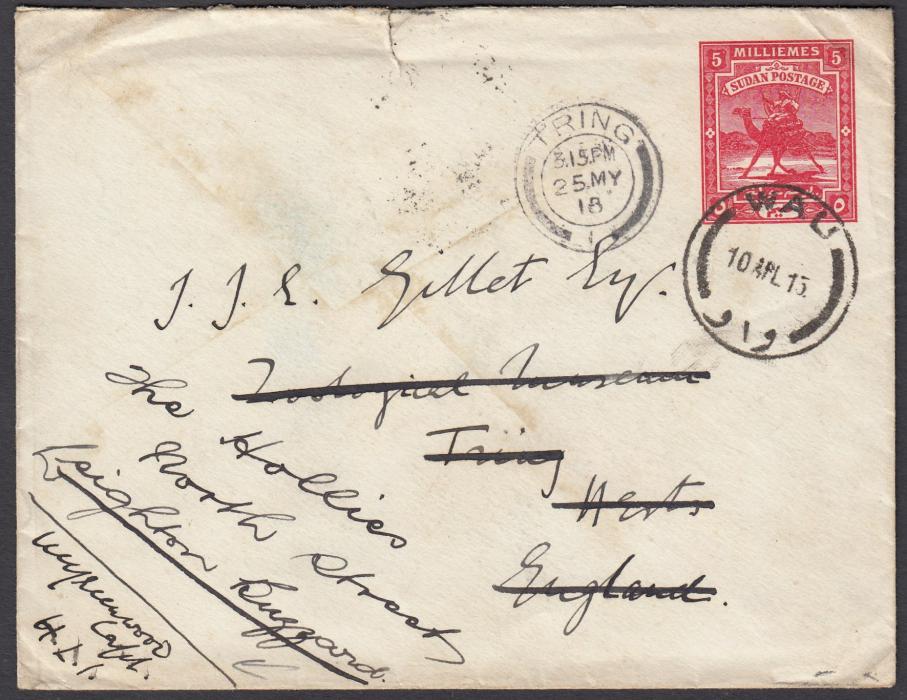 5 MILLIEMES 5
SUDAN POSTAGE
TRING
3.15.PM
25.MY
18
1
WAU
10 APL 15.
واو
J. J. E. Gillet Esq.
Zoological Museum
Tring
Herts
England.
The Hollies
North Street
Leighton Buzzard.
Capt.